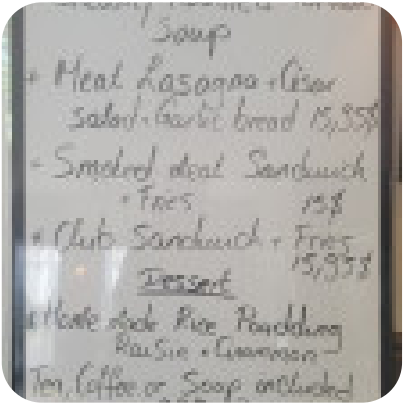 Soup
+ Meat Lasagna + César
salad + Garlic bread 15,95$
+ Smoked Meat Sandwich
+ Fries 15$
+ Club Sandwich + Fries
15,95$
Dessert
Home Made Rice Poudding
Raisin + Cinnamon
Tea, Coffee or Soup included